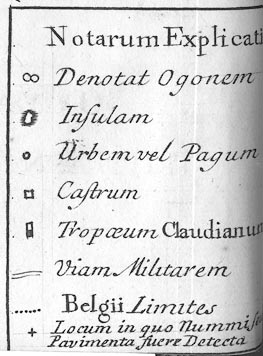 Notarum Explicati
Denotat Ogonem
Insulam
Urbem vel Pagum
Castrum
Tropœum Claudianum
Viam Militarem
Belgii Limites
Locum in quo Nummi
Pavimenta fuere Detecta